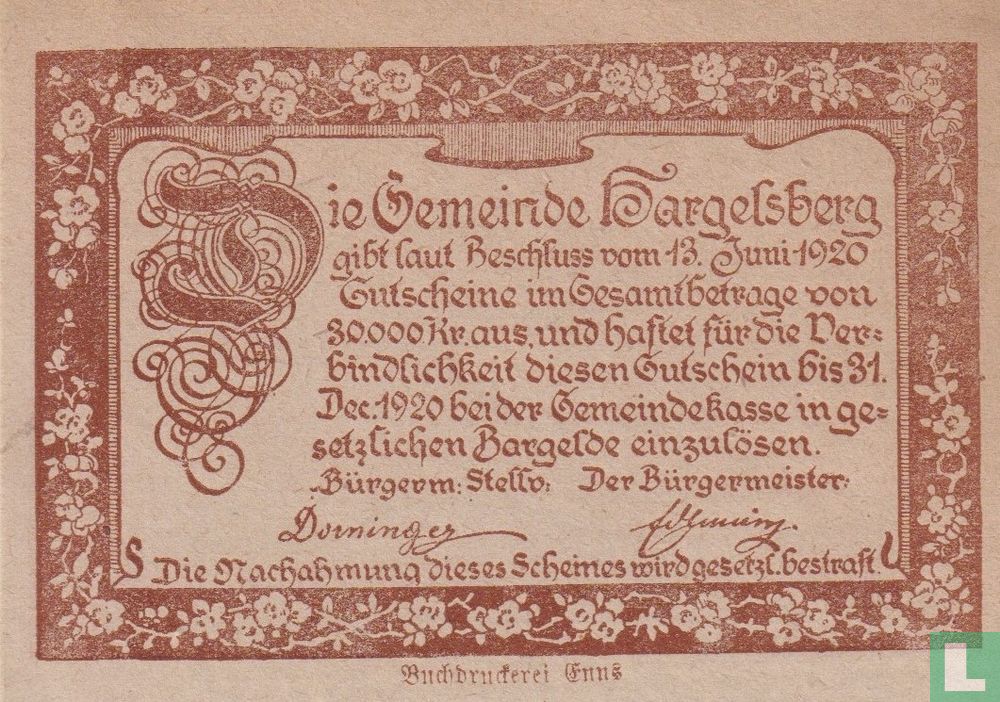 Die Gemeinde Hargelsberg
gibt laut Beschluss vom 13. Juni 1920
Gutscheine im Gesamtbetrage von
30.000 Kr. aus, und haftet für die Ver=
bindlichkeit diesen Gutschein bis 31.
Dec. 1920 bei der Gemeindekasse in ge=
setzlichen Bargelde einzulösen.
Bürgerm: Stellv: Der Bürgermeister:
Dorninger
Die Nachahmung dieses Scheines wird gesetzl. bestraft.
Buchdruckerei Enns
L